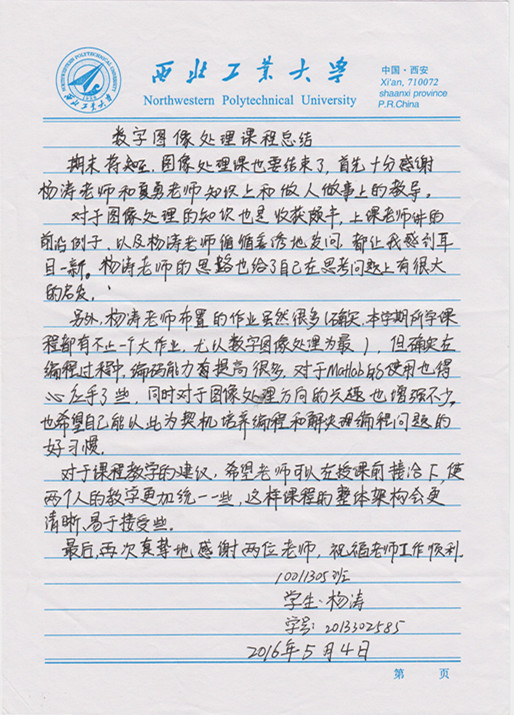 西北工业大学
Northwestern Polytechnical University
中国·西安
Xi'an, 710072
shaanxi province
P.R.China
数字图像处理课程总结
期末将知,图像处理课也要结束了,首先十分感谢
杨涛老师和夏勇老师知识上和做人做事上的教导。
对于图像处理的知识也是收获颇丰,上课老师讲的
前沿例子,以及杨涛老师循循善诱地发问,都让我感到耳
目一新。杨涛老师的思路也给了自己在思考问题上有很大
的启发。
另外,杨涛老师布置的作业虽然很多(确实,本学期所学课
程都有不止一个大作业,尤以数字图像处理为最),但确实在
编程过程中,编码能力有提高很多,对于Matlab的使用也得
心应手了些,同时对于图像处理方向的兴趣也增强不少,
也希望自己能从此为契机培养编程和解决理编程问题的
好习惯.
对于课程教学的建议,希望老师可以在授课前接洽下,使
两个人的教学更加统一一些,这样课程的整体架构会更
清晰,易于接受些。
最后,再次真挚地感谢两位老师,祝福老师工作顺利.
10011305班
学生:杨涛
学号:2013302585
2016年5月4日
第 页